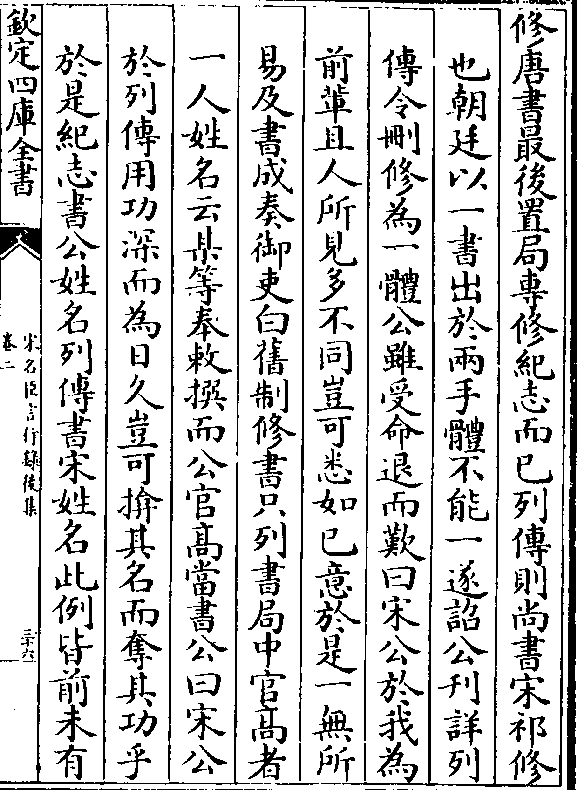 修唐書最後置局專修紀志而已列傳則尚書宋祁修
也朝廷以一書出於兩手體不能一遂詔公刋詳列
傳令刪修為一體公雖受命退而歎曰宋公於我為
前輩且人所見多不同豈可悉如己意於是一無所
易及書成奏御吏白舊制修書只列書局中官高者
一人姓名云某等奉敕撰而公官高當書公曰宋公
於列傳用功深而為日久豈可揜其名而奪其功乎
於是紀志書公姓名列傳書宋姓名此例皆前未有
欽定四庫全書
宋名臣言行録後集
卷二
三十六